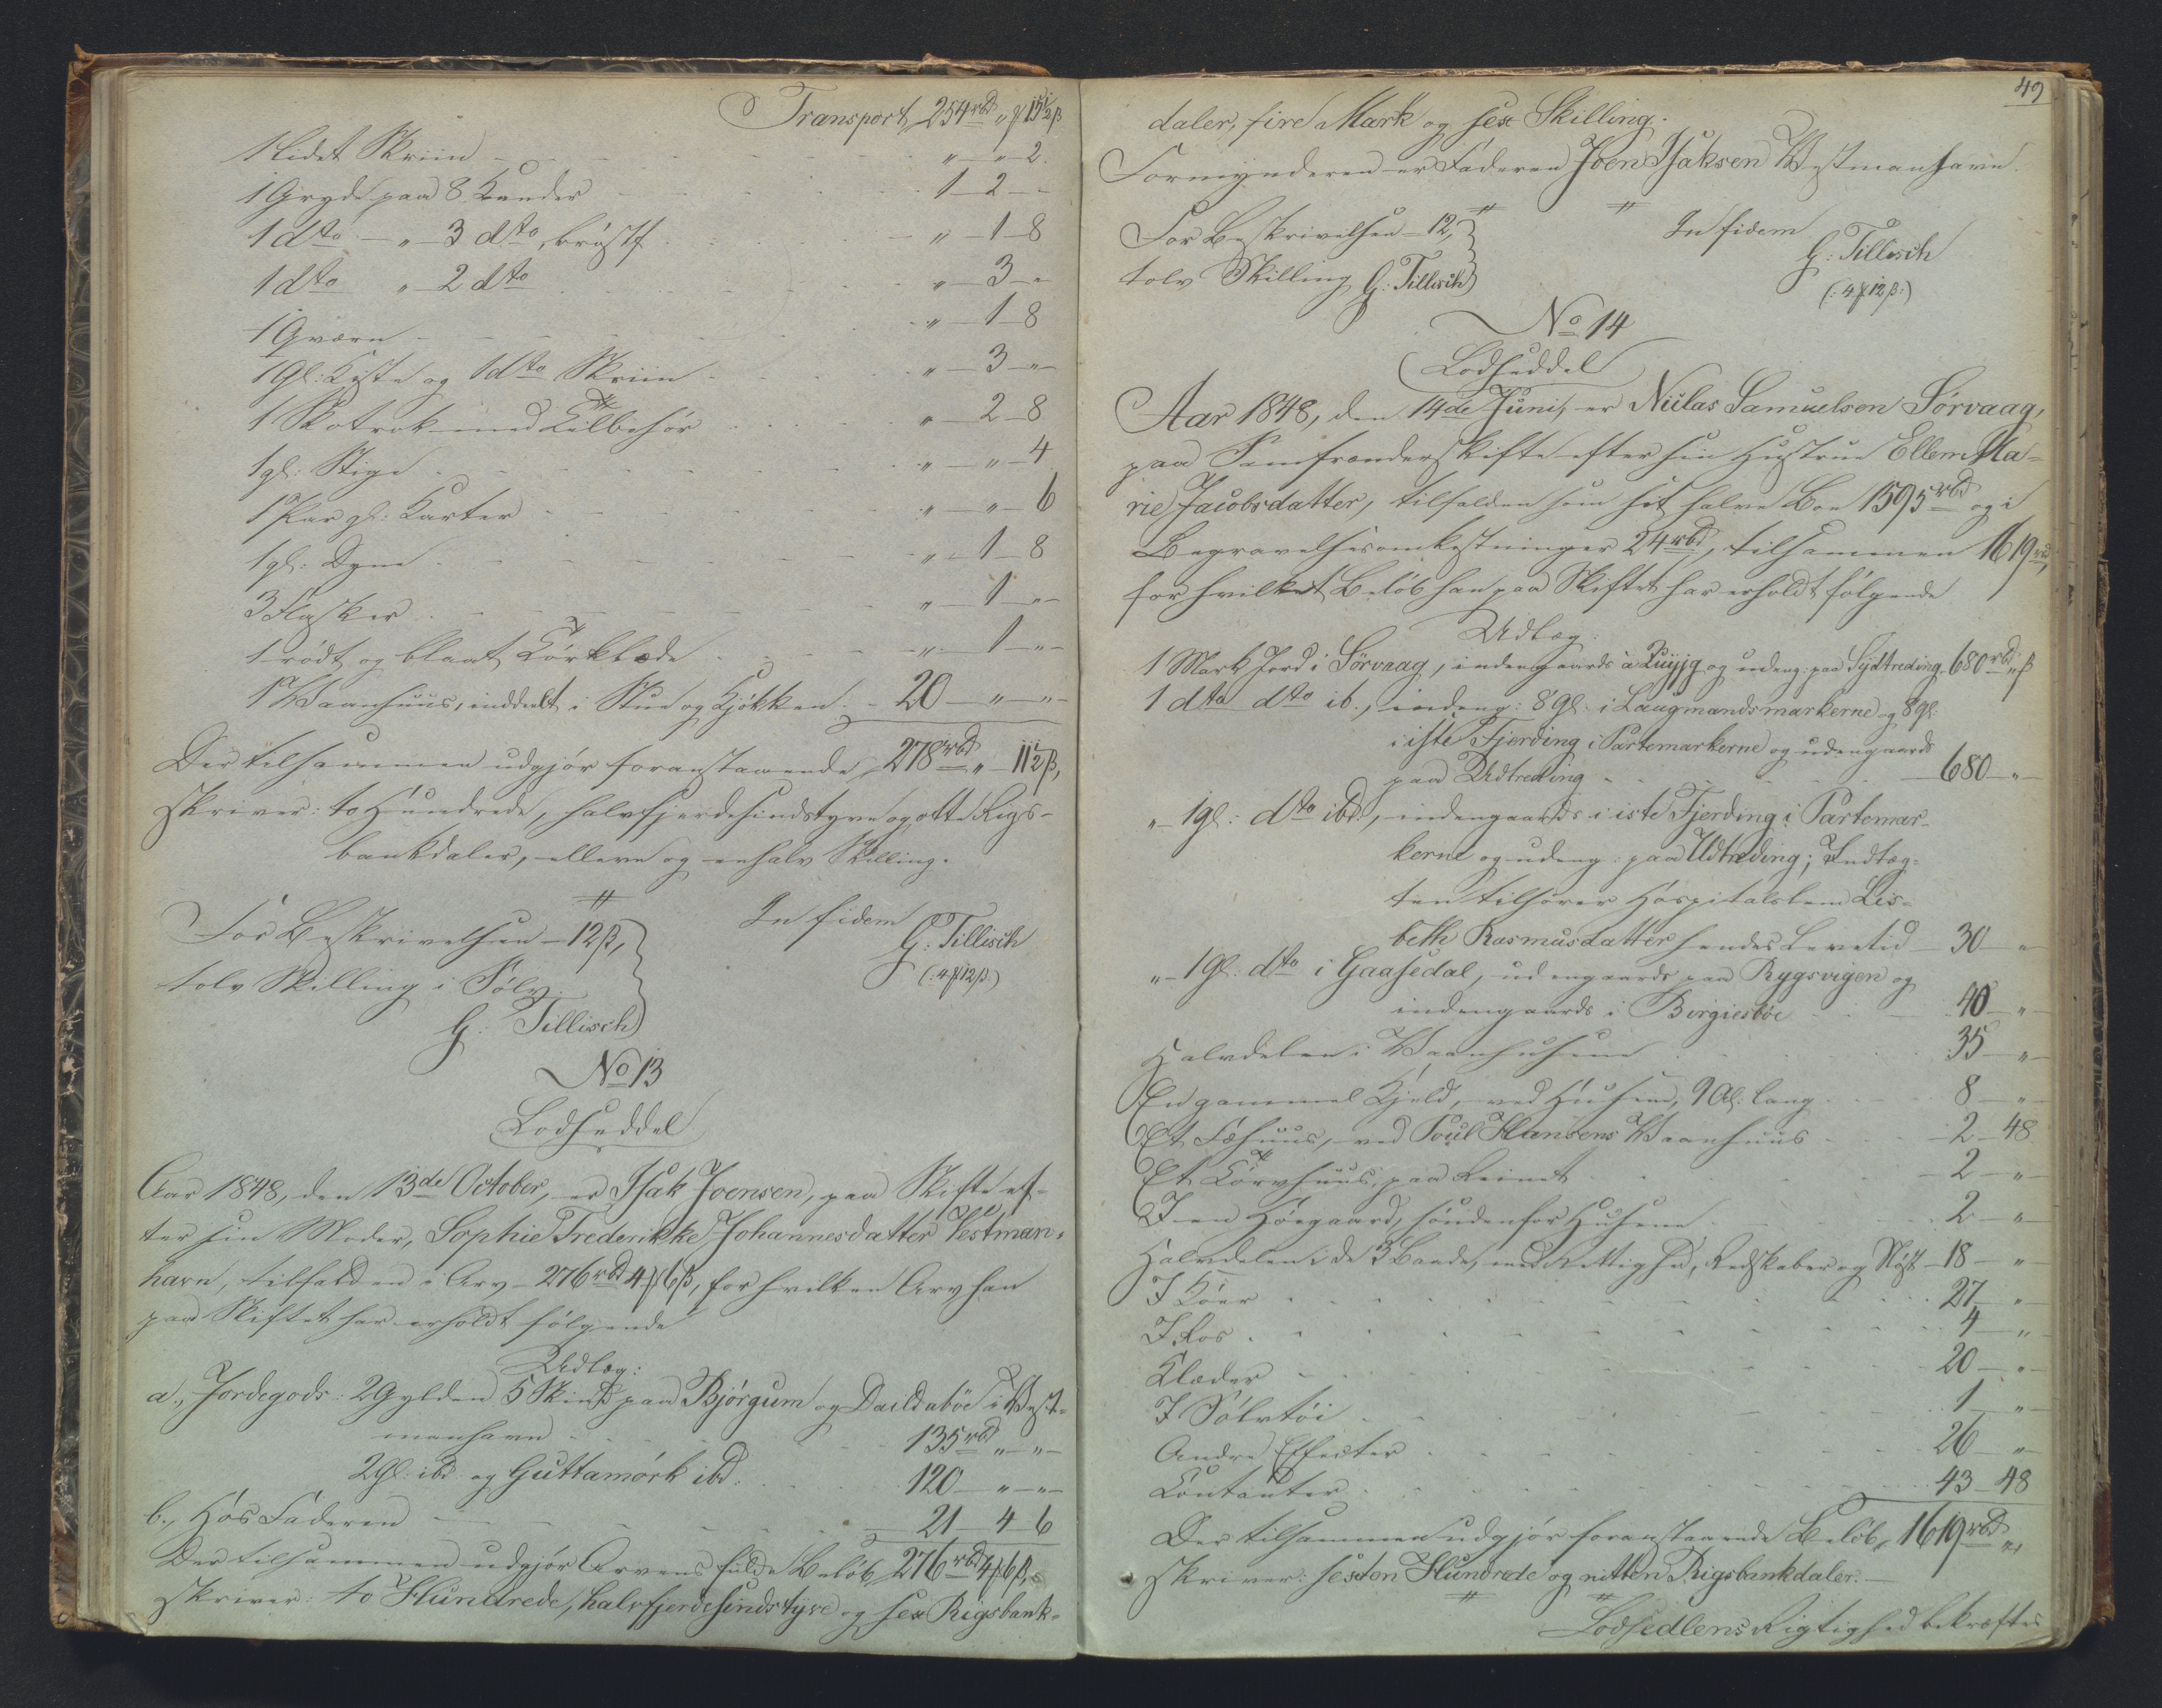 Transport, 254rbd „ ℳ 15½ß
1 lidet Skriin - - - „ - „ - 2.
1 Gryde paa 8 Kander - - - 1 - 2 - „
1 dto - „ - 3 dto, bröstf. - - - „ - 1 - 8
1 dto „ - 2 dto - - - „ - 3 - „
1 Qværn - - - „ - 1 - 8
1 Gl: Kiste og 1 dto Skriin - - - „ - 3 - „
1 Skotrok med Tilbehör - - - „ - 2 - 8
1 gl: Stige - - - „ - „ - 4
1 Par gl: Karter - - - „ - „ - 6
1 gl: Dyne - - - „ - 1 - 8
3 Flasker - - - „ - 1 - „
1 rödt og blaat Törklæde - - - „ - 1 - „
1 Vaanhuus, inddelt i Stue og Kjökken - 20 - „ - „
Der tilsammen udgjör foranstaaende 278rbd „ - 11½ß,
skriver: to Hundrede, halvfjerdesindstyve og otte Rigs-
bankdaler, elleve og en halv Skilling.
For Beskrivelsen - 12ß,
tolv Skilling i Sölv.
G: Tillisch
In fidem
G: Tillisch
(: 4ℳ12ß:)
No 13
Lodseddel
Aar 1848, den 13de October, er Isak Joensen, paa Skifte ef-
ter sin Moder, Sophie Frederikke Johannesdatter Vestman-
havn, tilfalden i Arv - 276rbd 4ℳ6ß, for hvilken Arv han
paa Skiftet har erholdt fölgende
Udlæg:
a., Jordegods: 2 Gylden 5 Skind paa Bjórgum og Daildaböe i Vest-
manhavn - - - 135rbd „ - „
2 Gl: ibd: og Guttamórk ibd. - - - 120 - „ - „
b., Hós Faderen - - - 21 - 4 - 6
Der tilsammen udgjör Arvens fulde Belöb, 276rbd 4ℳ6ß,
skriver: to Hundrede, halvfjerdesindstyve og sex Rigsbank-
49
daler, fire Mark og sex Skilling.
Formynderen er Faderen Joen Isaksen Westmanhavn.
For Beskrivelsen - 12,
tolv Skilling G: Tillisch
In fidem
G: Tillisch
(: 4ℳ12ß:)
No 14
Lodseddel
Aar 1848, den 14de Juni, er Niilas Samuelsen Sörvaag,
paa Samfrænderskifte efter sin Hustrue Ellen Ma-
rie Jacobsdatter, tilfalden som sit halve Boe 1595rbd og i
Begravelsesomkostninger 24rbd, tilsammen 1619rbd,
for hvilket Belöb han paa Skiftet har erholdt fölgende
Udlæg:
1 Mark Jord i Sörvaag, indengaards à Ruyjg og udeng: paa Sydtreding. 680rbd „ß
1 dto dto ib., indeng: 8 Gl: i Laugmandsmarkerne og 8 gl:
i iste Fjerding i Partemarkerne og udengaards
paa Udtreding - - - 680 - „
„ - 1 gl: dto ibd:, indengaards i iste Fjerding i Partemar-
kerne og udeng: paa Udtreding; Indtæg-
ten tilhører Hospitalslem Lis-
beth Rasmusdatter hendes Levetid - 30 - „
„ - 1 Gl: dto i Gaasedal, udengaards paa Rygsvigen og
indengaards i Birgiesböe - - - 40 - „
Halvdelen i Vaanhusene - - - 35 - „
En gammel Hjeld, ved Husene, 9 Al: lang - - - 8 - „
Et Fæhuus, ved Poul Hansens Vaanhuus - - - 2 - 48
Et Törvhuus, paa Reinet - - - 2 - „
I en Höegaard, söndenfor Husene - - - 2 - „
Halvdelen i de 3 Baade, med Rettighed, Redskaber og Nöst - 18 - „
I Köer - - - 27 - „
I Kos - - - 4 - „
Klæder - - - 20 - „
I Sölvtöi - - - 1 - „
Andre Effecter - - - 26 - „
Contanter - - - 43 - 48
Der tilsammen udgjör foranstaaende Belöb, 1619rbd „,
skriver: sexten Hundrede og nitten Rigsbankdaler. -
Lodsedlens Rigtighed bekræftes